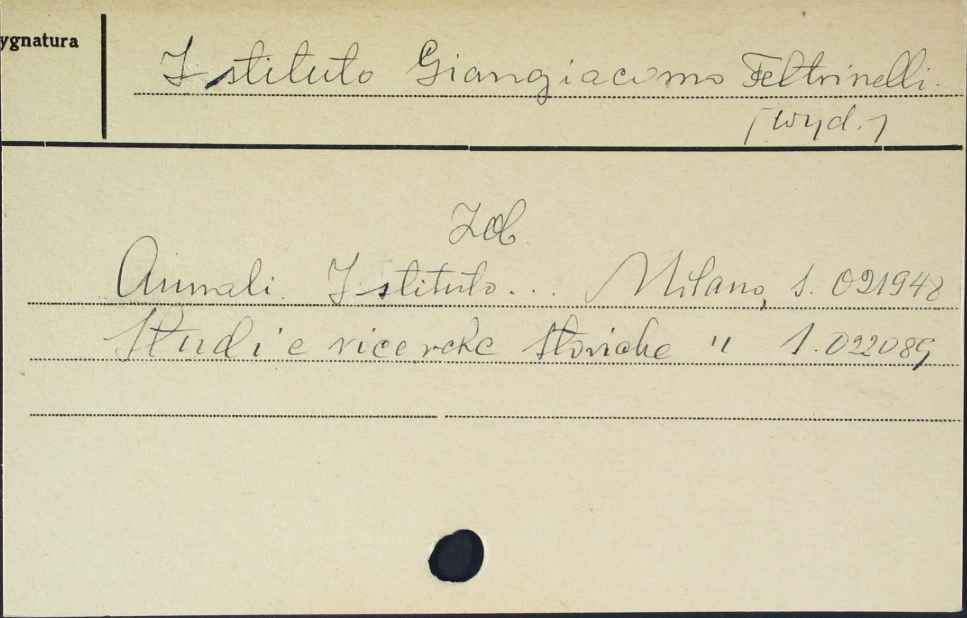 ygnatura
Istituto Giangiacomo Feltrinelli.
[wyd.]
Zob.
Annali Istituto... Milano, 1.021948
Studi e ricerche storiche " 1.022089